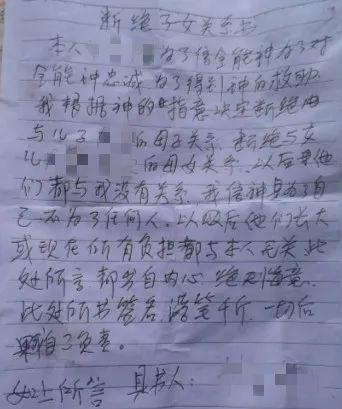 断绝子女关系书
本人 为了信全能神为了对
全能神忠诚为了得到神的救助
我根据神的旨意决定断绝由
与儿子 的母子关系.断绝与女
儿 的母女关系.以后其他
们都与我没有关系.我信神只为了自
己不为了任何人.以后他们长大
或现在所有负担都与本人无关.此
处所言都出自内心.绝不悔意.
此处所书签名.落笔千斤.一切后
果自己负责。
以上所言 具书人: